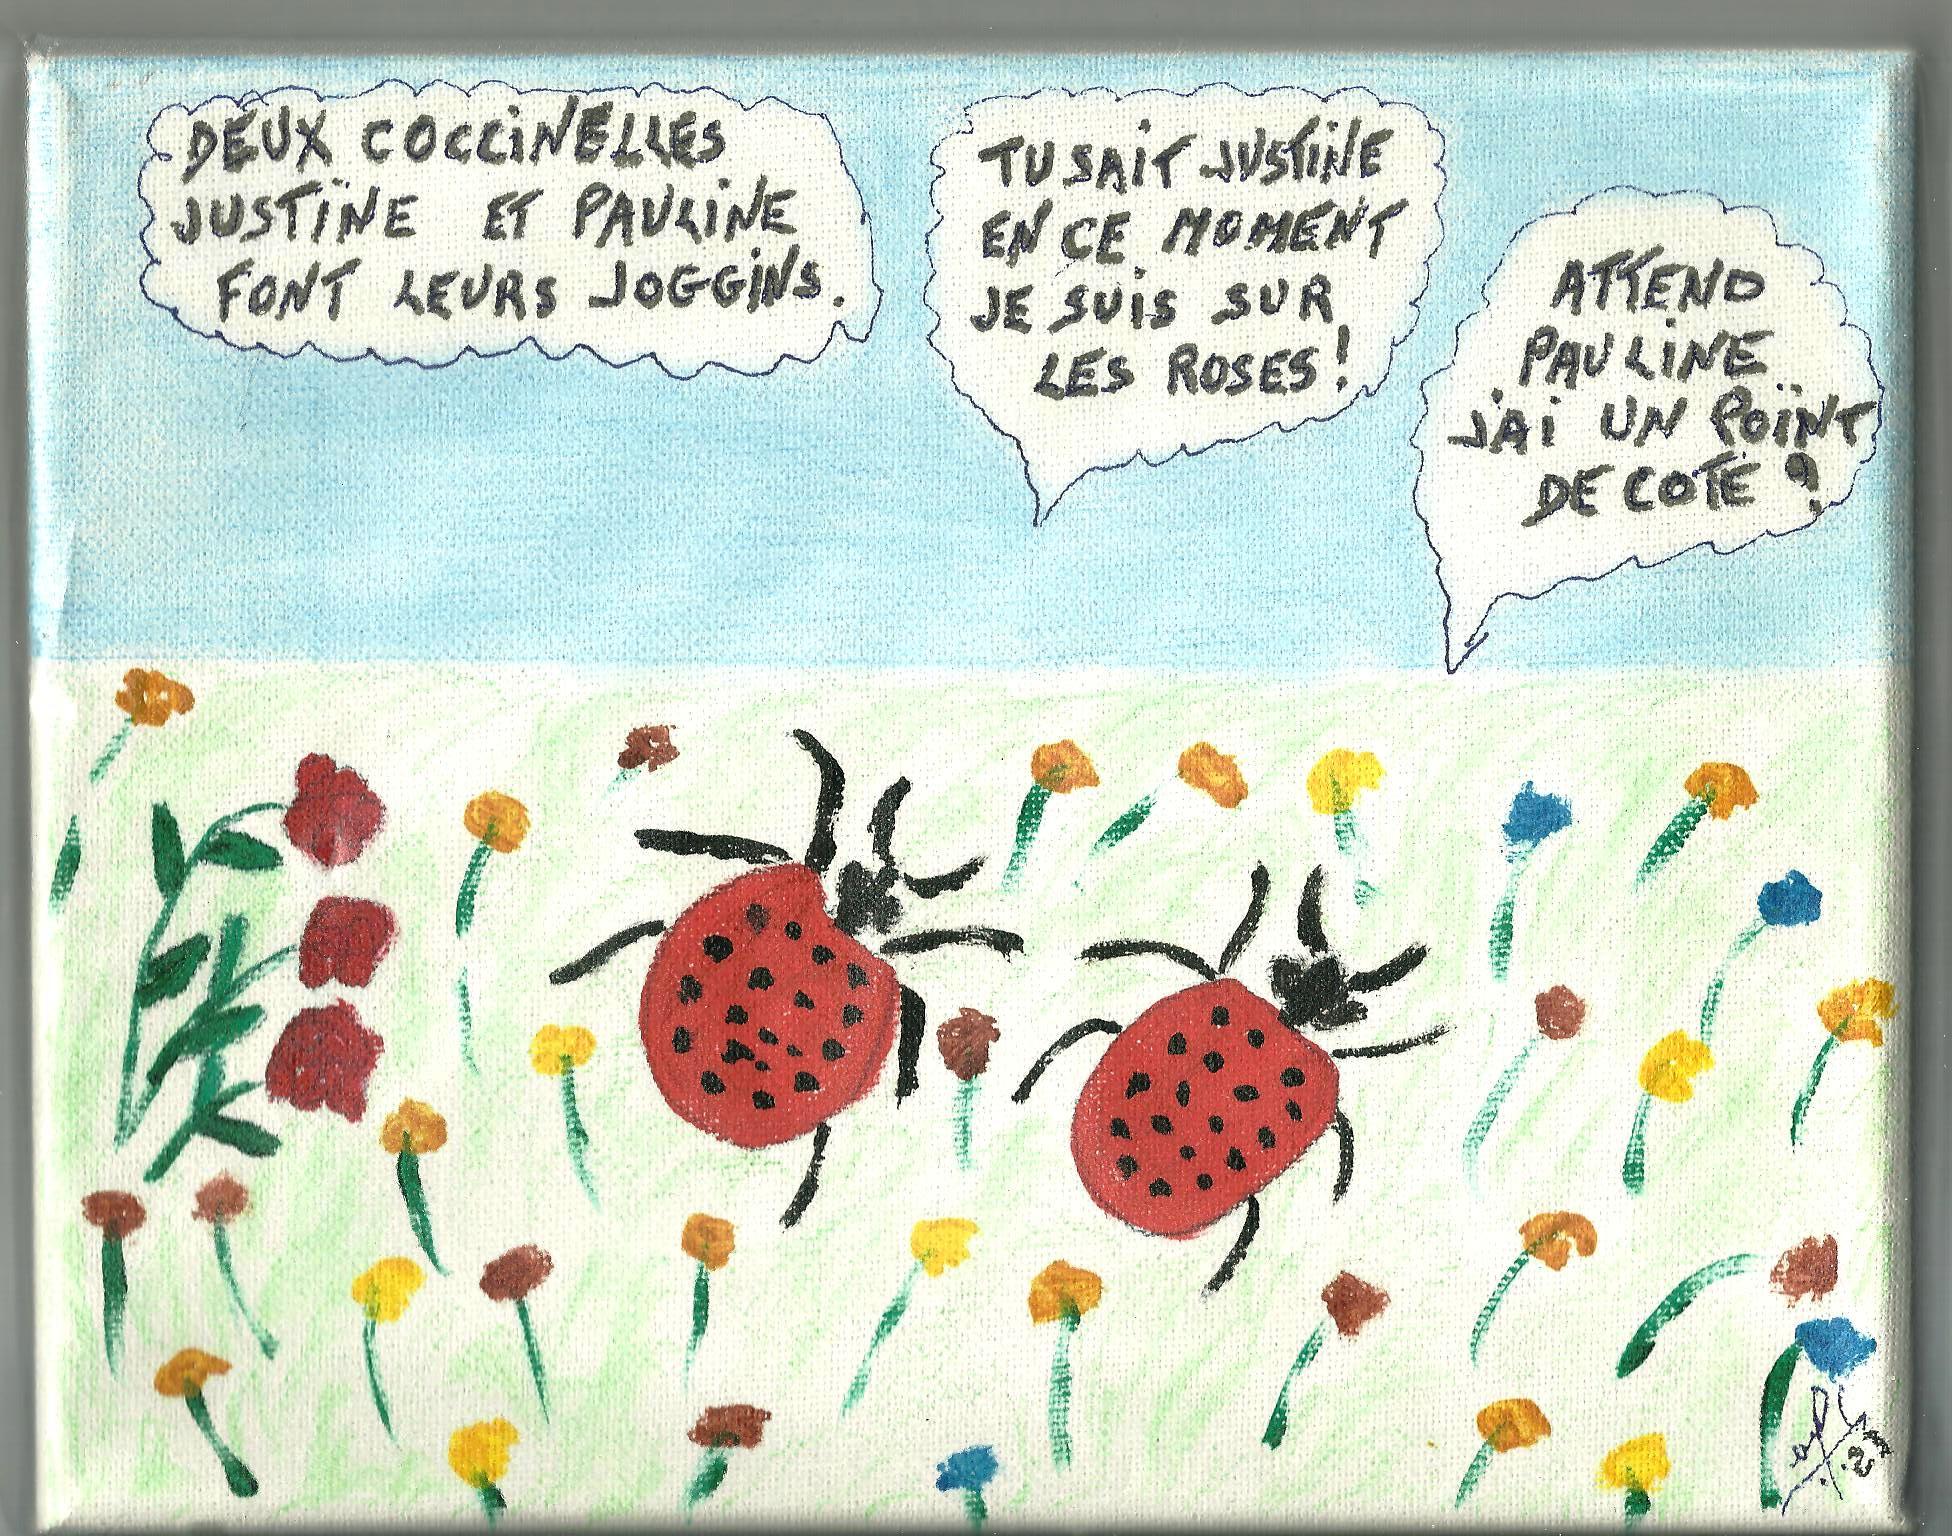 DEUX COCCINELLES
JUSTINE ET PAULINE
FONT LEURS JOGGINS.
TU SAIT JUSTINE
EN CE MOMENT
JE SUIS SUR
LES ROSES!
ATTEND
PAULINE
J'AI UN POÏNT
DE COTE ?